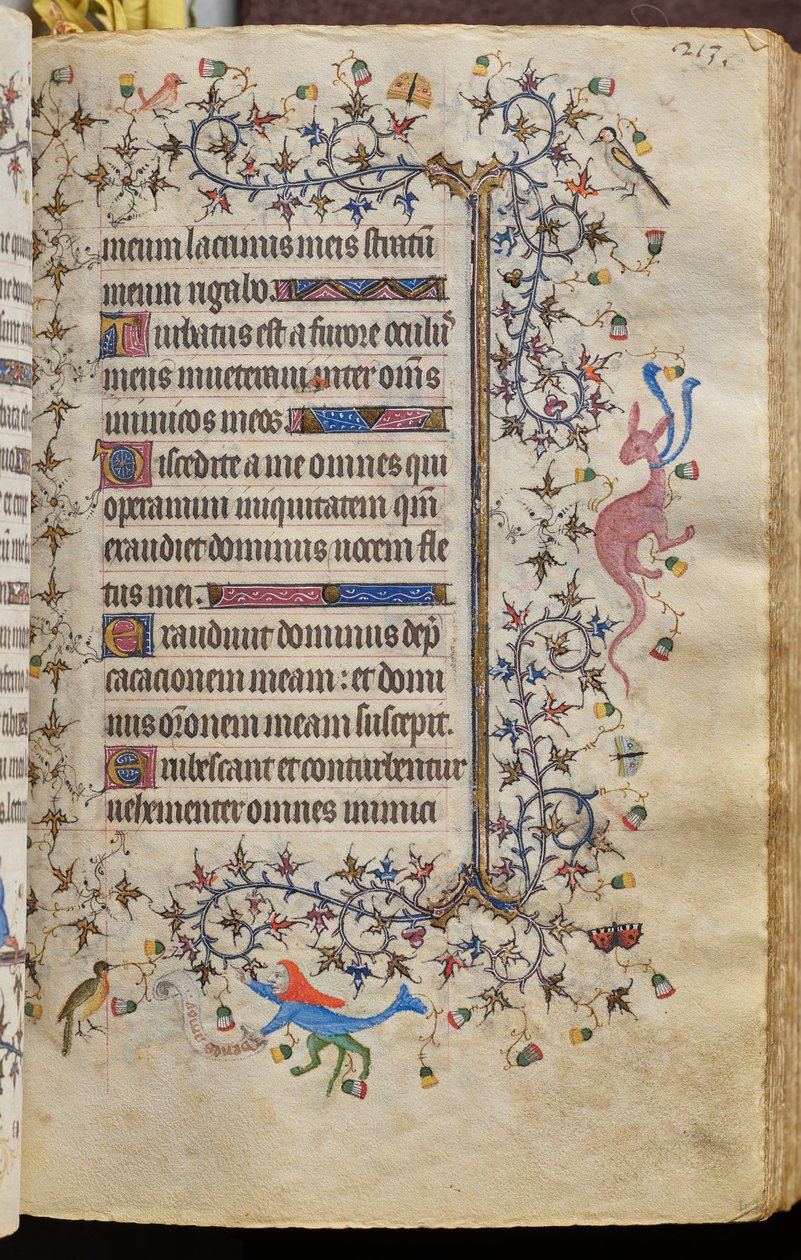 217.
meum lacrimis meis stratū
meum rigabo.
Turbatus est a furore oculus
meus inueteraui inter oms
inimicos meos.
Discedite a me omnes qui
operamini iniquitatem qm̄
exaudiet dominus uocem fle
tus mei.
Exaudiuit dominus dep̄
cacionem meam : et domi
nus or̄onem meam suscepit.
Erubescant et conturbentur
uehementer omnes inimici